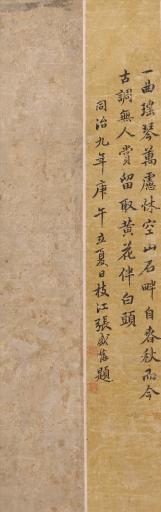 一曲瑤琴萬慮恘空山石畔自春秋而今
古調無人賞留取黃花伴白頭
同治九年庚午立夏日枝江張盛藻題